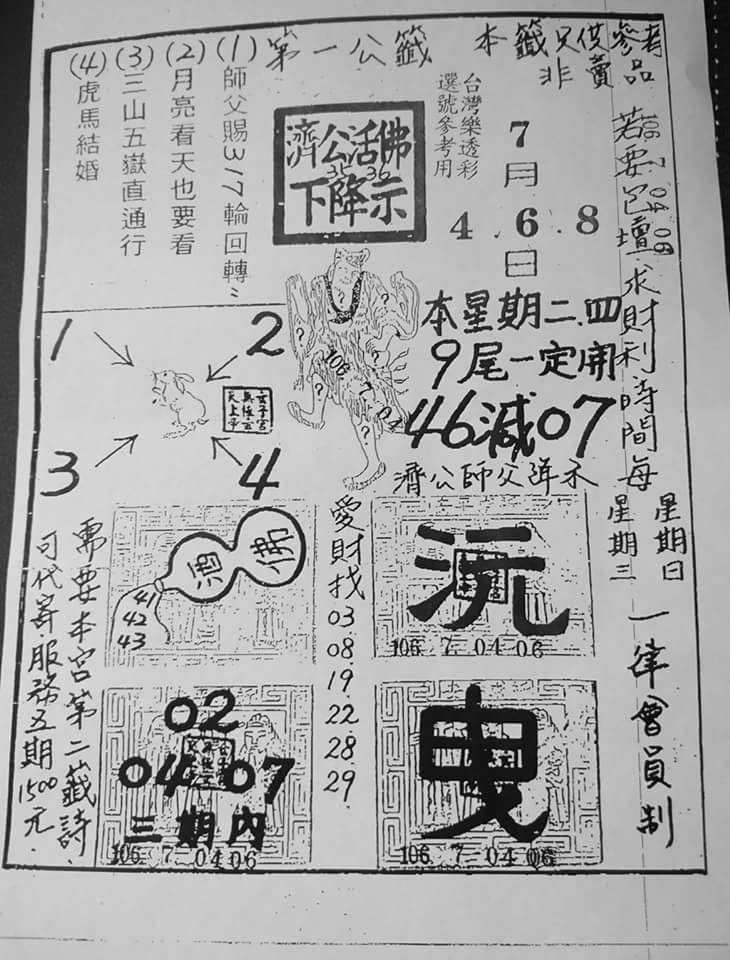 第一公籤
本籤只供參考
非賣品
(1)師父賜317輪回轉..
(2)月亮看天也要看
(3)三山五嶽直通行
(4)虎馬結婚
濟公活佛
35 36
下降示
台灣樂透彩
選號參考用
7月6日
4 . 6 . 8
若要包壇求財利時間每
星期日
星期三
一律會員制
本星期二.四
9尾一定開
46減07
濟公師父降示
1
2
3
4
106
7
04
酒
佛
41
42
43
愛財找
03
08
19
22
28
29
沅
106. 7. 04 06
02
04 07
三期內
106. 7 04 06
曳
106. 7 04 06
需要本宮第二籤詩.
可代寄.服務五期1500元.